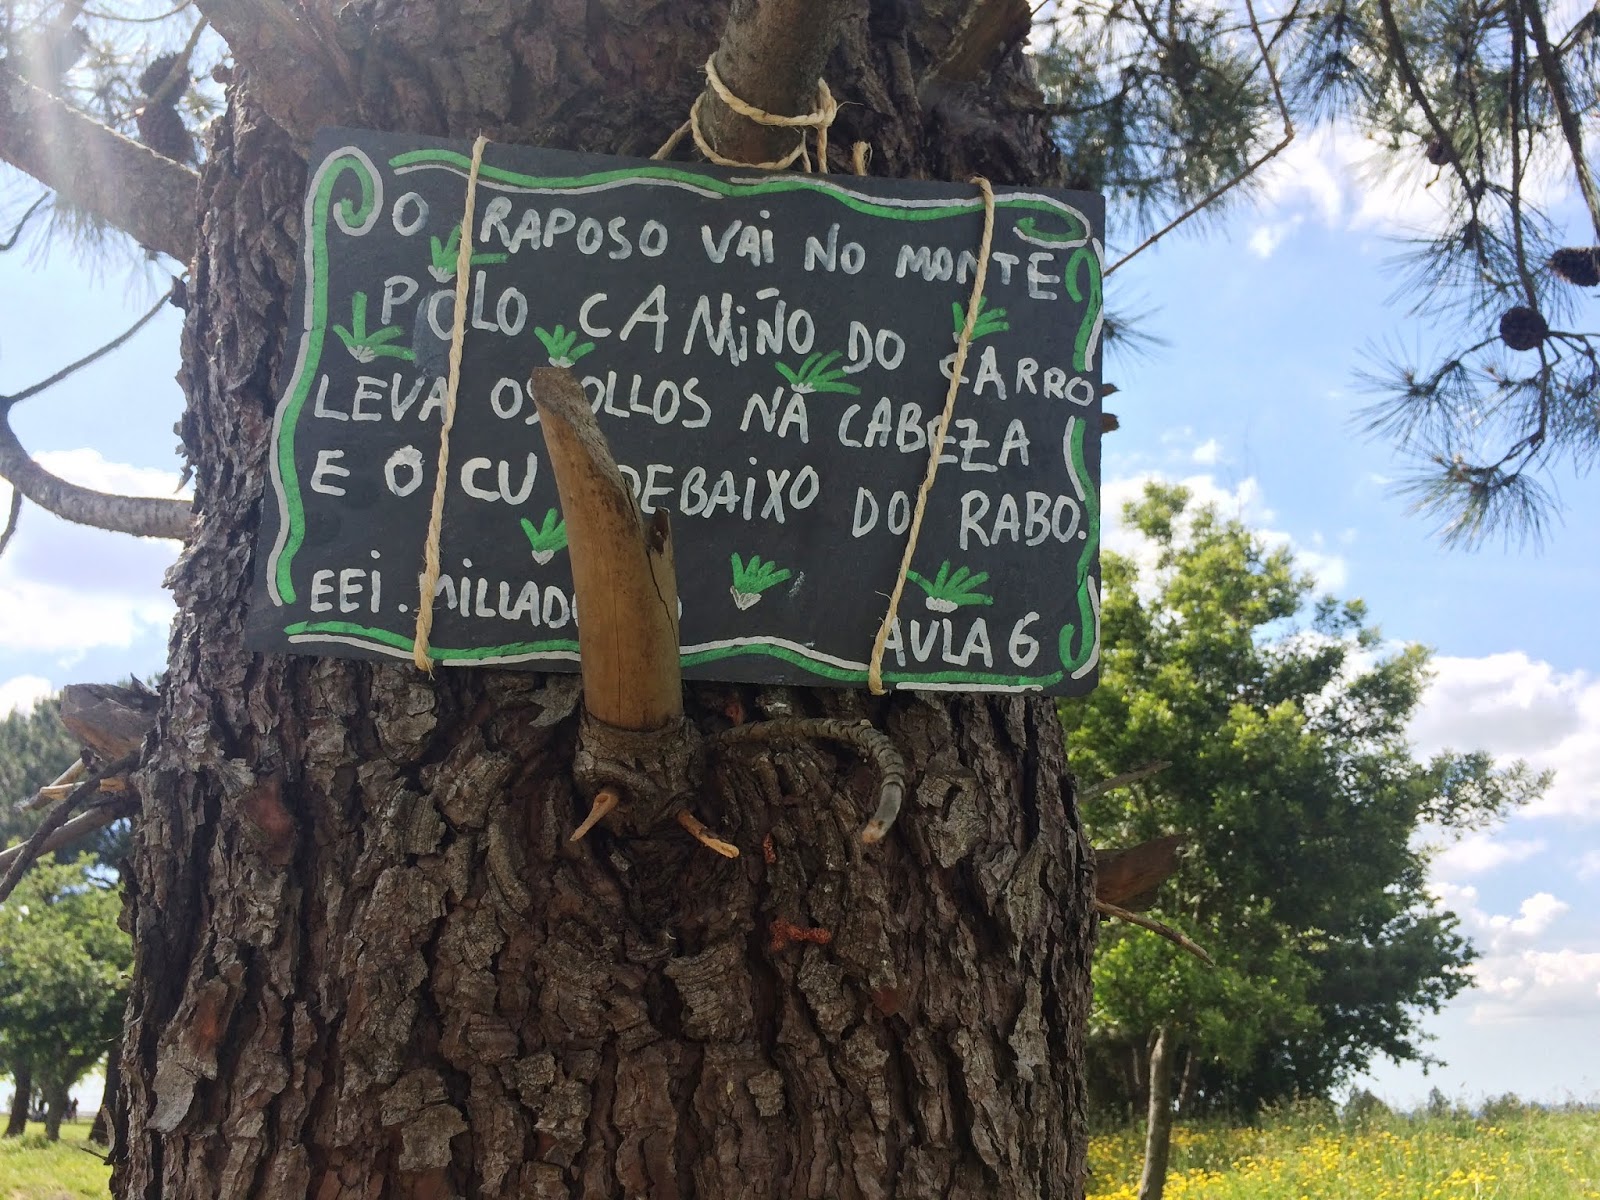 O RAPOSO VAI NO MONTE
POLO CAMIÑO DO CARRO
LEVA OS OLLOS NA CABEZA
E O CU DEBAIXO DO RABO.
EEI. AULA 6